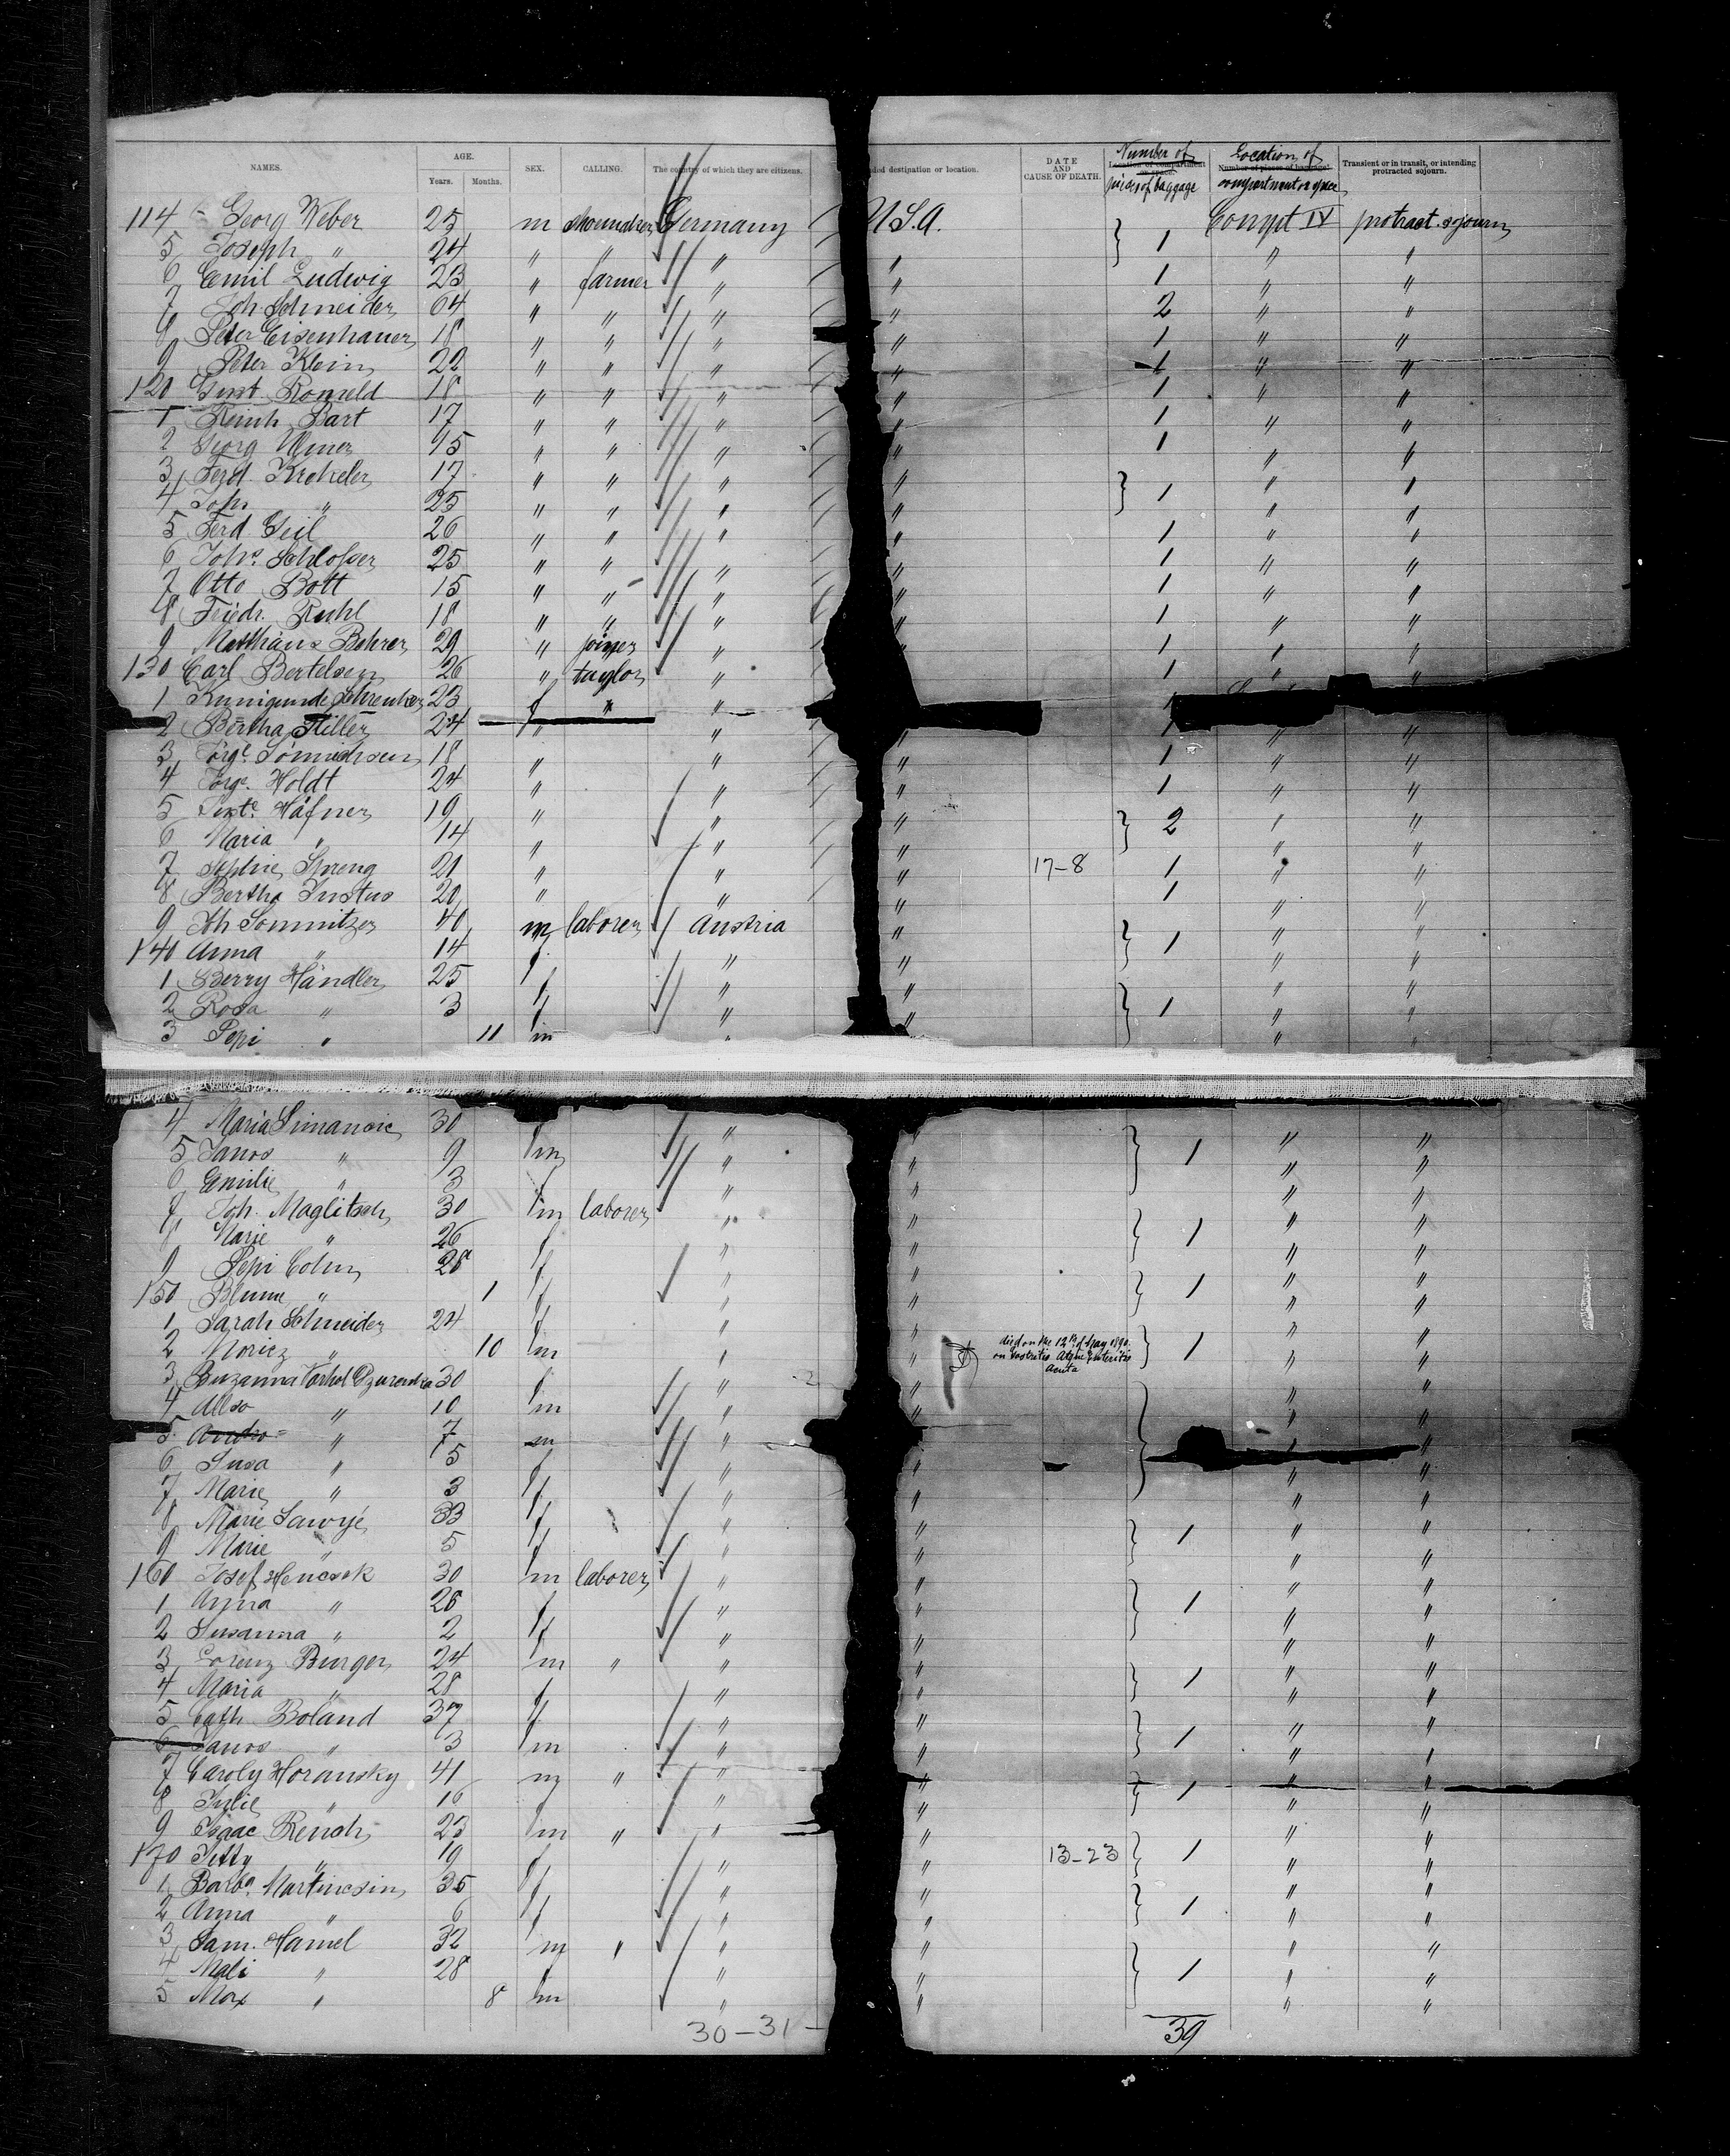 NAMES. AGE. Years. Months. SEX. CALLING. The country of which they are citizens. ded destination or location. DATE AND CAUSE OF DEATH. Location of compartment or space. Number of pieces of baggage Number of pieces of baggage. Location of compartment or space Transient or in transit, or intending protracted sojourn.
114 Georg Weber 25 m Germany U.S.A. Compt IV protract. sojourn
5 Joseph " 24 " " " " 1 " "
6 Emil Ludwig 23 " farmer " " 1 " "
7 Joh Schneider 64 " " " " 2 " "
8 Peter Eisenhauer 18 " " " " 1 " "
9 Peter Klein 22 " " " " 1 " "
120 Gust. Romeld 18 " " " " 1 " "
1 Heinh. Bart 17 " " " " 1 " "
2 Georg Ulmer " " " " 1 " "
3 Ferd. Krokeler 17 " " " " " "
4 Joh. " 25 " " " " 1 " "
5 Ferd Geil 26 " " " " 1 " "
6 Johs. Schlosser 25 " " " " 1 " "
7 Otto Bott 15 " " " " 1 " "
8 Friedr. Ruhl 18 " " " " 1 " "
9 Matthäus Behrer 29 " joiner " " 1 " "
130 Carl Bertelsen 26 " taylor " 1 " "
1 Kunigunde Schrenker 23 f " "
2 Bertha Hiller 24 " " " " "
3 Jörge Sönnichsen 18 " " " 1 " "
4 Jörge Holdt 24 " " " 1 " "
5 Häfner 19 " " " 2 " "
6 Maria " 14 " " " " "
7 Sophie Spreng 21 " " " 17-8 1 " "
8 Bertha Justus 20 " " " 1 " "
9 Jth Sommitzer 40 m laborer Austria " " "
140 Anna " 14 f " " 1 " "
1 Berry Händler 25 f " " " "
2 Rosa " 3 f " " 1 " "
3 Pepi " 11 m " " "
4 Maria Simanovic 30 " " " "
5 Janos " 9 m " " 1 " "
6 Emilie " 3 f " " " "
7 Joh. Maglitsch 30 m laborer " " " "
8 Marie " 26 f " " 1 " "
9 Pepi Cohn 28 f " " " "
150 Blume " 1 f " " 1 " "
1 Sarah Schneider 24 f " " " "
2 Moricz " 10 m " " died on the 12th of May 1890 1 " "
3 Suzanna 30 f " " " "
4 " 10 m " " " "
5 Andro " 7 m " " "
6 Susa " 5 f " " " "
7 Marie " 3 f " " " "
8 Marie Sawyé 33 f " " 1 " "
9 Marie " 5 f " " " "
160 Josef Hencsek 30 m laborer " " " "
1 Anna " 26 f " " 1 " "
2 Susanna " 2 f " " " "
3 Lorenz Burger 24 m " " " " "
4 Maria " 28 f " " 1 " "
5 Cath Boland 37 f " " " "
6 Janos " 3 m " " 1 " "
7 Caroly Horansky 41 m " " " " "
8 Julie " 16 f " " 1 " "
9 Isaac Reich 23 m " " " " "
170 Jetty " 19 f " " 13-23 1 " "
1 Barba. Martincsin 35 f " " " "
2 Anna " 6 f " " 1 " "
3 Sam. Hamel 32 m " " " " "
4 Mali " 28 f " " 1 " "
5 Max " 8 m " " " "
30-31- 39